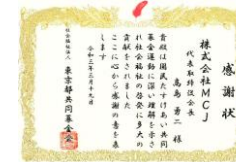 感謝状
株式会社MCJ
代表取締役会長
高島 勇二 様
貴殿は国民たすけあい共同
募金運動に深い理解を寄さ
れ社会福祉の啓発に多大の
貢献をされました
ここに心から感謝の意を表
します
令和三年三月十九日
社会福祉法人
東京都共同募金会